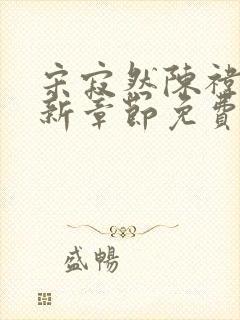 宋寂然陳襟
新章節免費
盛暢